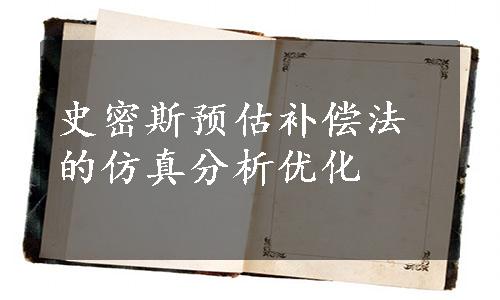 史密斯预估补偿法
的仿真分析优化